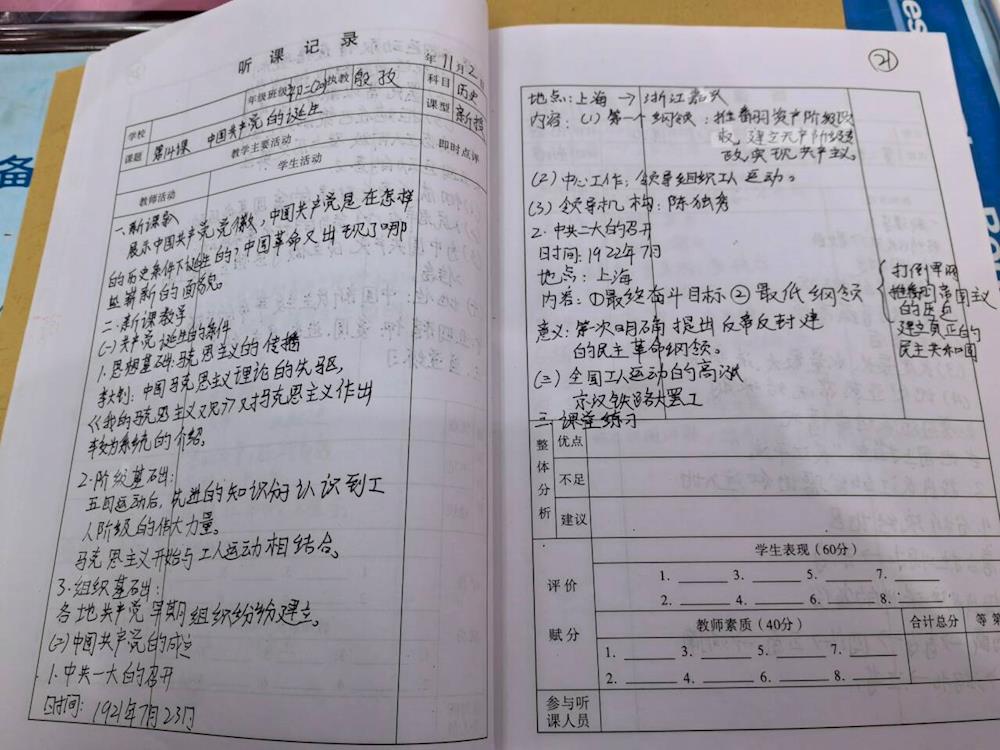 听课记录
年11月2日
学校
年级班级
初二(20)
执教
殷孜
科目
历史
课题
第14课 中国共产党的诞生
课型
新授
教学主要活动
即时点评
教师活动
学生活动
一、新课导入
展示中国共产党党徽，中国共产党是在怎样
的历史条件下诞生的？中国革命又出现了哪
些崭新的面貌。
二、新课教学
(一)共产党诞生的条件
1.思想基础：马克思主义的传播
李大钊：中国马克思主义理论的先驱，
《我的马克思主义观》对马克思主义作出
较为系统的介绍。
2.阶级基础：
五四运动后，先进的知识分子认识到工
人阶级的伟大力量。
马克思主义开始与工人运动相结合。
3.组织基础：
各地共产党早期组织纷纷建立。
(二)中国共产党的成立
1.中共一大的召开
时间：1921年7月23日
21
地点：上海→浙江嘉兴
内容：(1)第一个纲领：推翻资产阶级政
权，建立无产阶级专
政，实现共产主义。
(2)中心工作：领导组织工人运动。
(3)领导机构：陈独秀
2.中共二大的召开
时间：1922年7月
地点：上海
内容：①最终奋斗目标②最低纲领
打倒军阀
推翻国帝国主义
的压迫
建立真正的
民主共和国
意义：第一次明确提出反帝反封建
的民主革命纲领。
(三)全国工人运动的高涨
京汉铁路大罢工
三、课堂练习
整体分析
优点
不足
建议
评价赋分
学生表现（60分）
1. 3. 5. 7.
2. 4. 6. 8.
教师素质（40分）
合计总分
等第
1. 3. 5. 7.
2. 4. 6. 8.
参与听
课人员